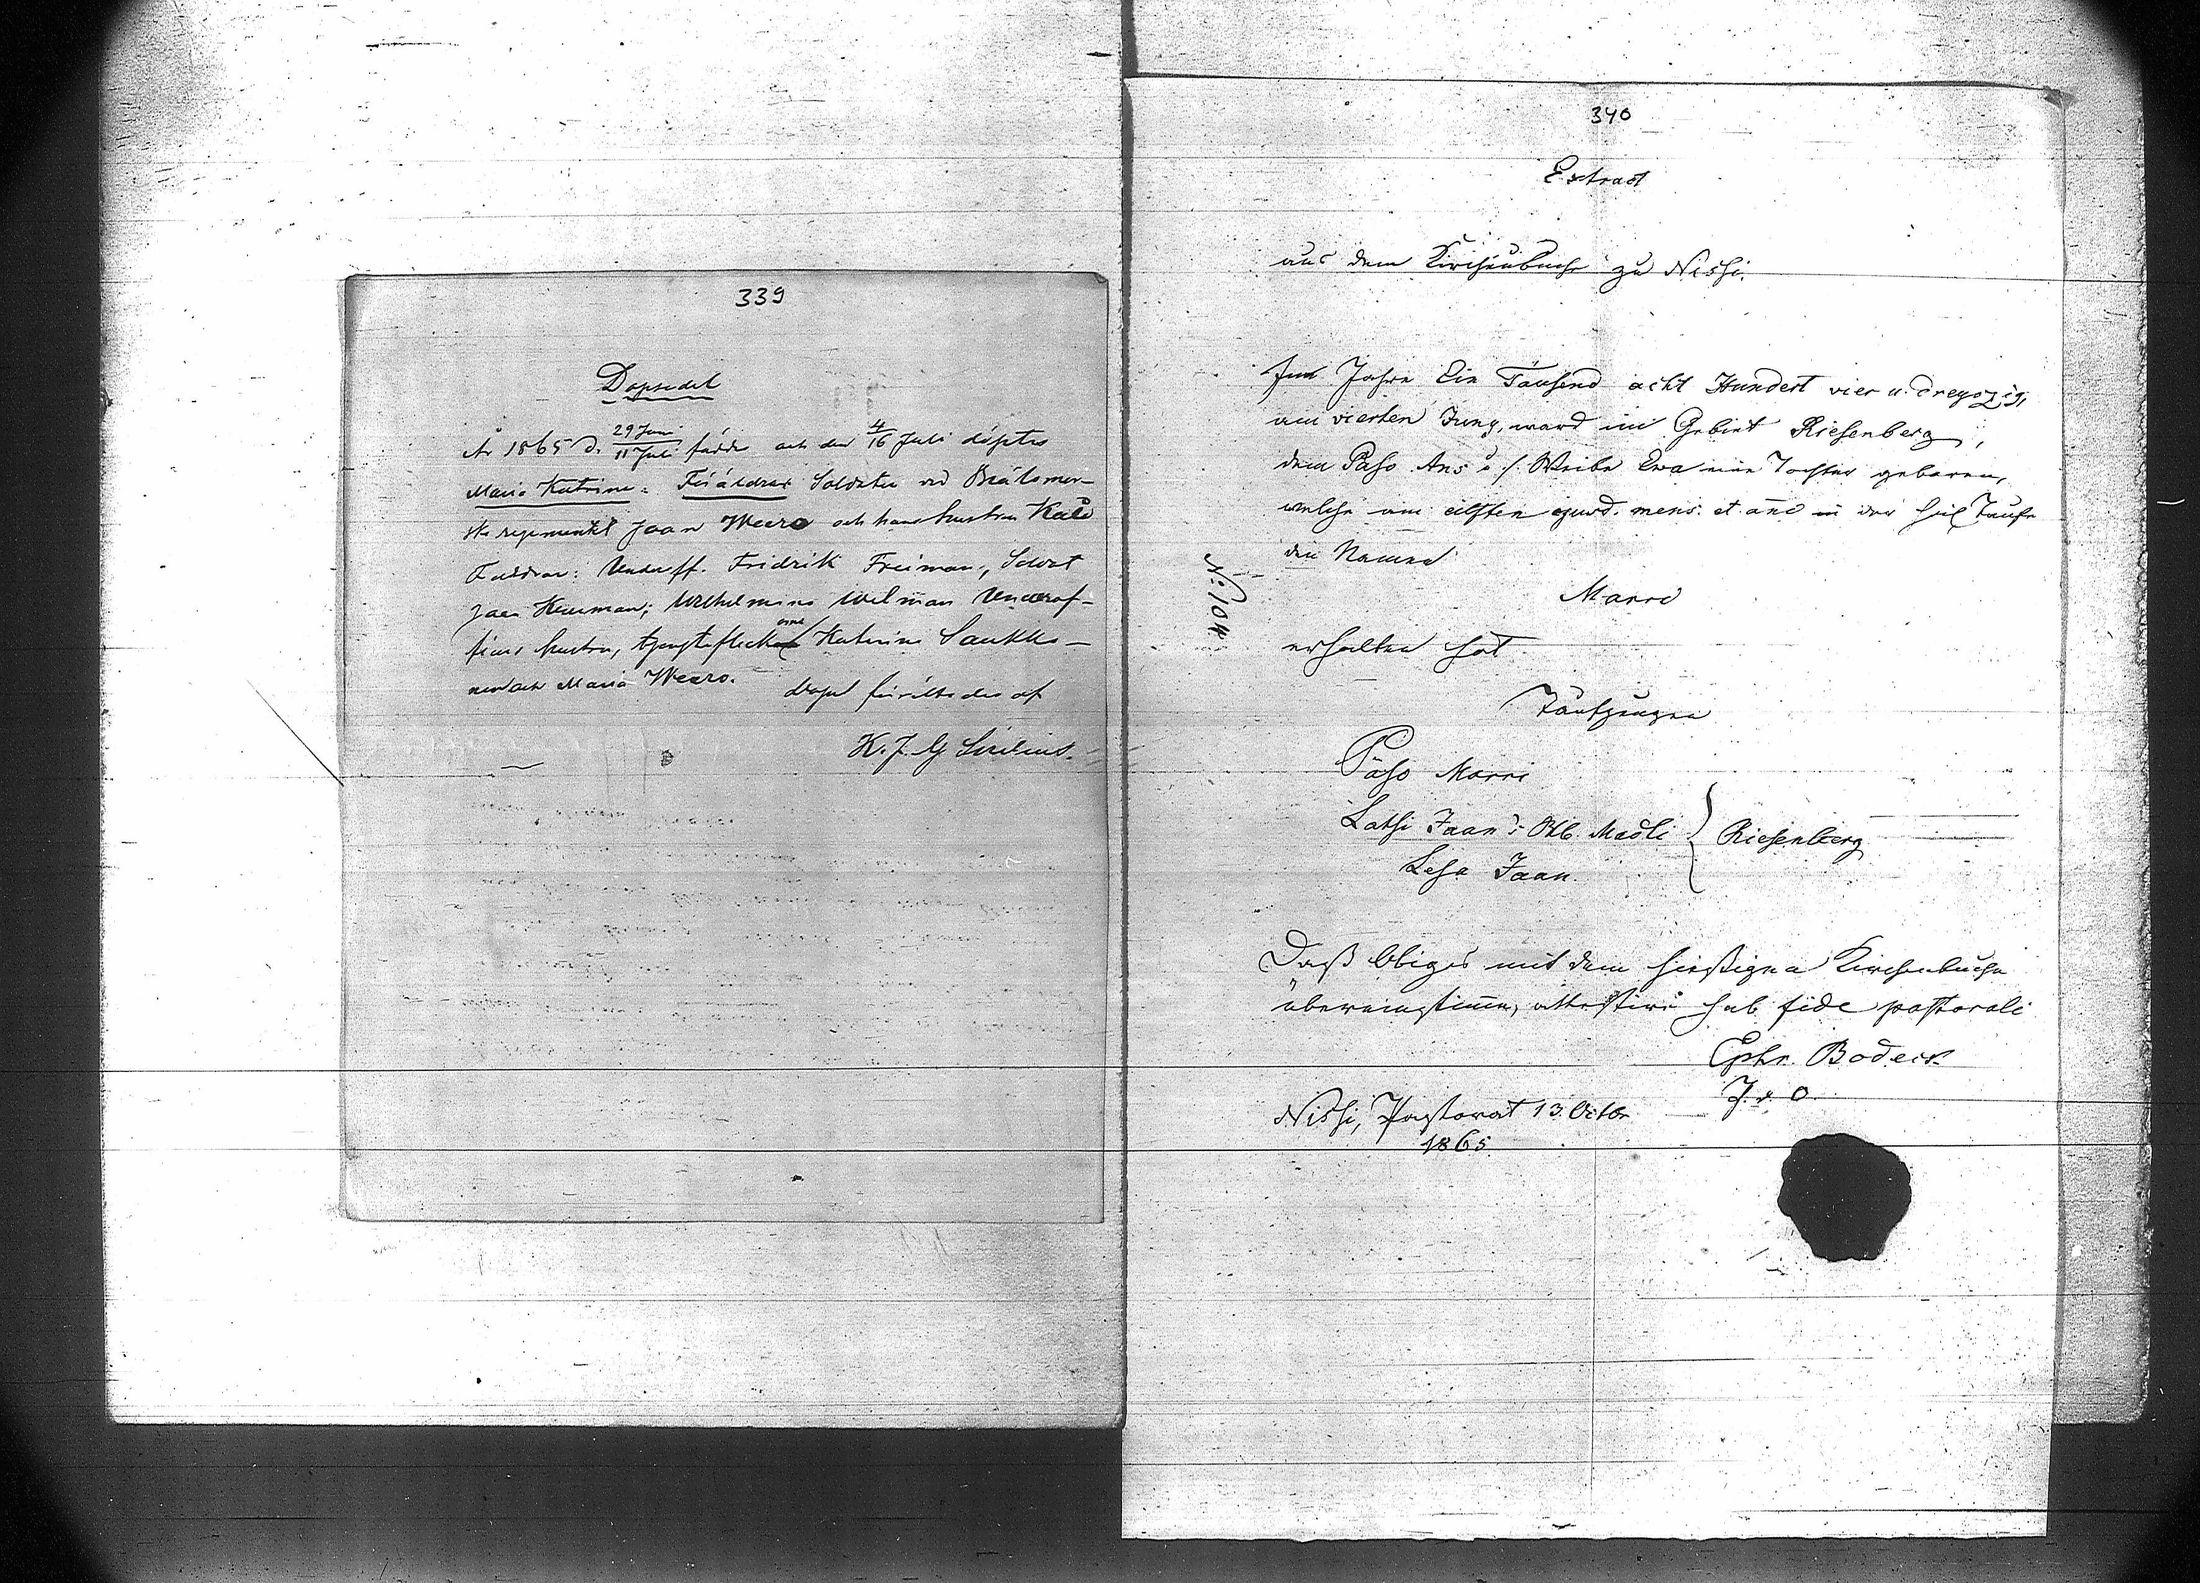 339
Dopsedel
År 1865 d. 29 Juni / 11 Juli födde och den 4/16 Juli döptes
Maria Katrina. Föräldrar Soldaten vid
regementet Jaan Weero och hans hustru Kaie
Faddrar: Underoff. Fridrik Freiman, Soldat
Jaan ; Wilhelmina Underof-
ficers hustru, Katarina Saukko-
nen och Maria Weero.
Dopet förrättades af
K. J. G. Sirelius.
340
Extract
aus dem Kirchenbuche zu Nissi.
Im Jahre Ein Tausend acht Hundert vier u. dreyszig,
am vierten Juny, ward im Gebiet Riesenberg,
dem Paso Ans u. s. Weibe Ewa eine Tochter geboren,
welche am eilften ejusd. mens. et ann in der heil Taufe
den Namen
Marri
erhalten hat.
No: 104
Taufzeugen
Päso Marri
Latsi Jaan's Wb. Madli
Lesa Jaan
Riesenberg
Daß Obiges mit dem hiesigen Kirchenbuche
übereinstimme, attestire sub fide pastorali
Ephr. Bodeck
Nissi, Pastorat 13 Octbr
1865.